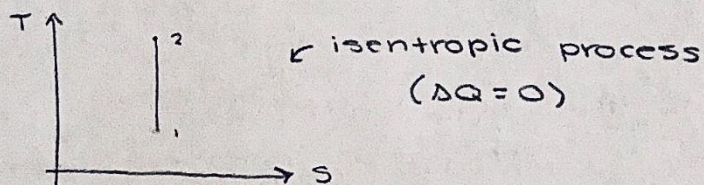 T
2
isentropic process
(ΔQ = 0)
1
S